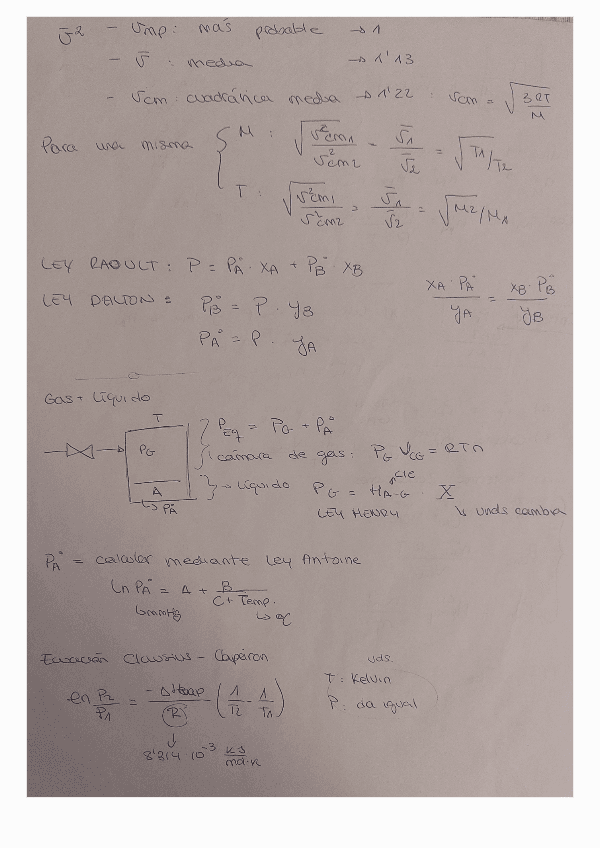 v̄² - Vmp: más probable → 1
- v̄ : media → 1'13
- Vcm: cuadrática media → 1'22 : Vcm = √(3RT/M)
Para una misma { M : √(v²cm1/v²cm2) = v̄1/v̄2 = √(T1/T2)
T : √(v²cm1/v²cm2) = v̄1/v̄2 = √(M2/M1)
LEY RAOULT : P = PA° · XA + PB° · XB
LEY DALTON : PB° = P · yB
PA° = P · yA
XA · PA° / yA = XB · PB° / yB
Gas + Líquido
T
PG
A
↳ PA°
PEq = PG + PA°
cámara de gas: PG VCG = RTn
→ Líquido PG = HA-G · X
cte
LEY HENRY ↳ unds cambia
PA° = calcular mediante Ley Antoine
Ln PA° = A + B/(C + Temp.)
↳ mmHg ↳ ºC
Ecuación Clausius - Clapeyron
uds.
T : Kelvin
P : da igual
ln P2/P1 = -ΔHvap/R (1/T2 - 1/T1)
↓
8'314 10⁻³ KJ/mol·K